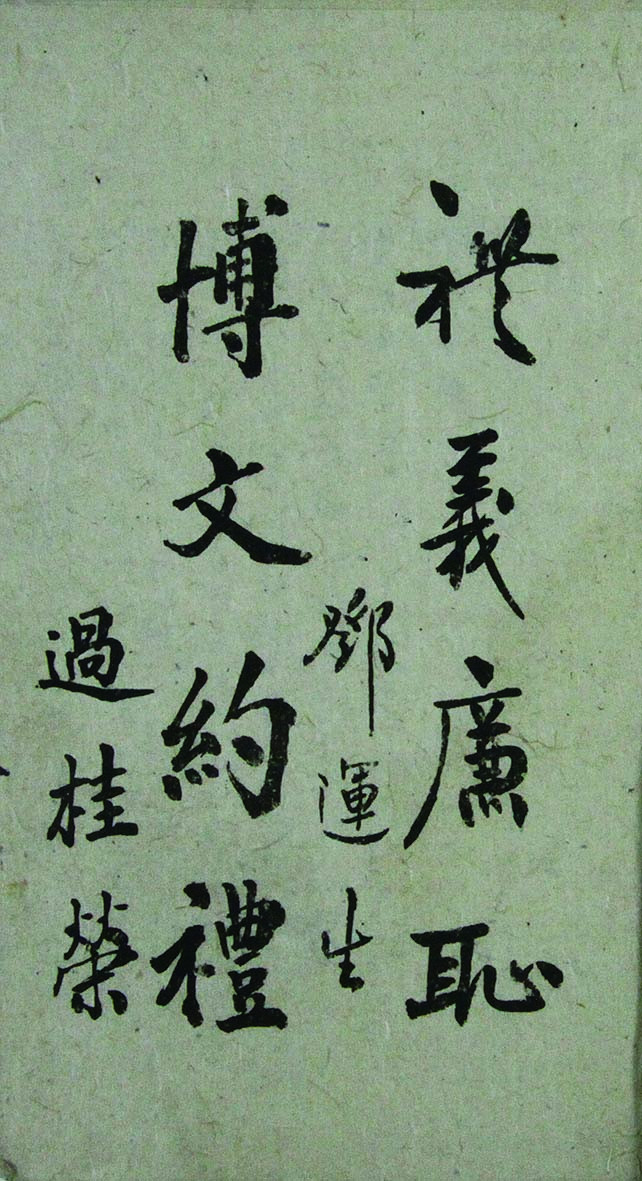 禮義廉恥
鄧運生
博文約禮
過桂榮